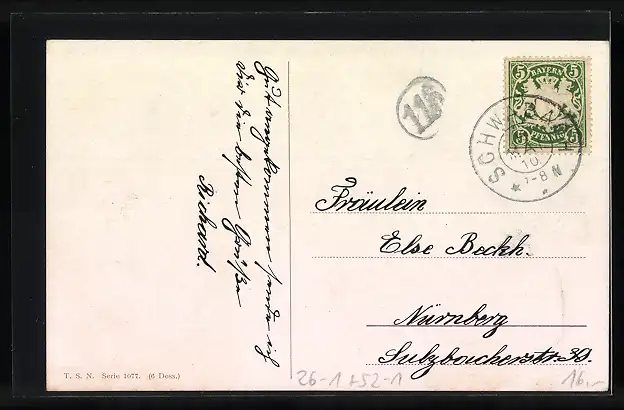 Gut angekommen sende ich
dir die besten Grüße
Richard.
116
5 5
BAYERN
5 PFENNIG 5
SCHWABACH
10
7-8 N
Fräulein
Else Beckh.
Nürnberg
Sulzbacherstr. 39.
T. S. N. Serie 1677. (6 Dess.)
26-1 +52-1
16,-